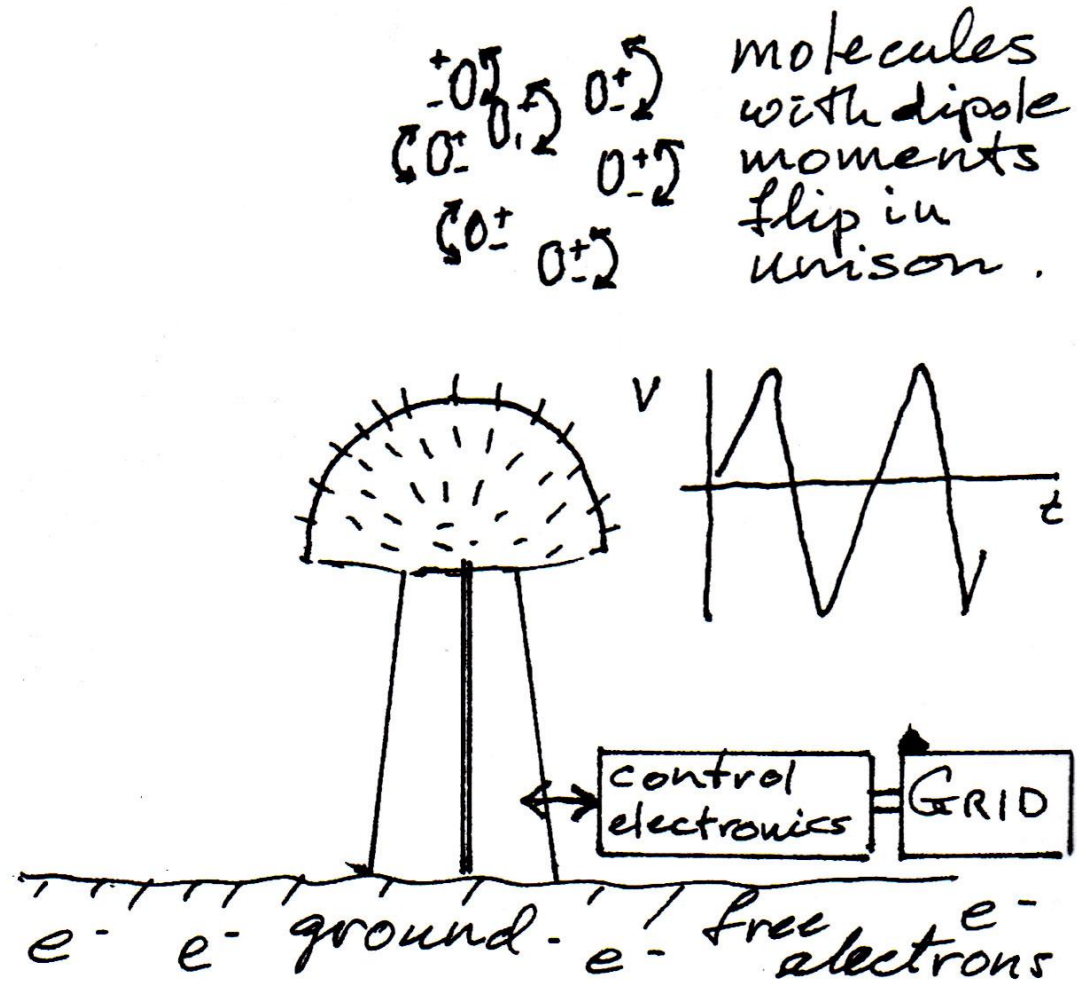 molecules
with dipole
moments
flip in
unison.
+ -
+ -
+ -
+ -
+ -
+ -
+ -
V
t
control
electronics
GRID
e- e- ground. e- free e-
electrons